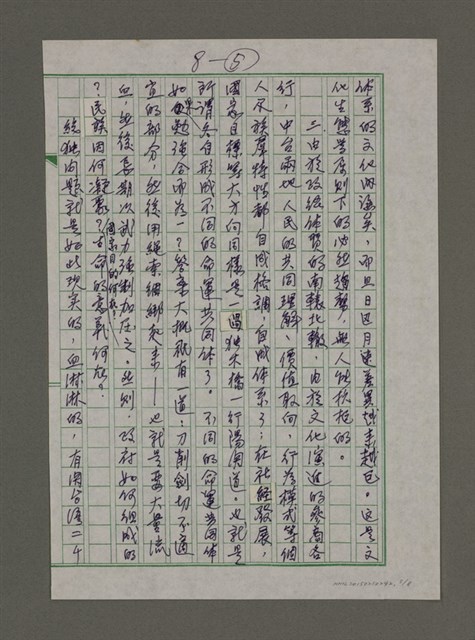 8—⑤
體系的文化內涵矣，而且日逐月連差異越來越巨。這是文
化生態發展則下的必然趨勢，無人能抗拒的。
三、由於政經體質的南轅北轍，由於文化演進的參商各
行，中台兩地人民的共同理解、價值取向、行為模式等個
人及族羣特性都自成格調，自成體系了；在社經發展，
國家目標等大方向同樣是一過獨木橋一行陽關道。也就是
所謂各自形成不同的命運共同體了。不同的命運共同體
如果勉強合而為一？答案大概就有一道：刀削劍切不適
宜的部分，然後用繩索綑綁起來——也就是要大量流
血，然後長期以武力強制加在之。然則，政府如何組成的
？民族因何凝聚？國家目的何在？生命的意義何在？
統獨問題就是如此現實的，血淋淋的，有關台灣二千